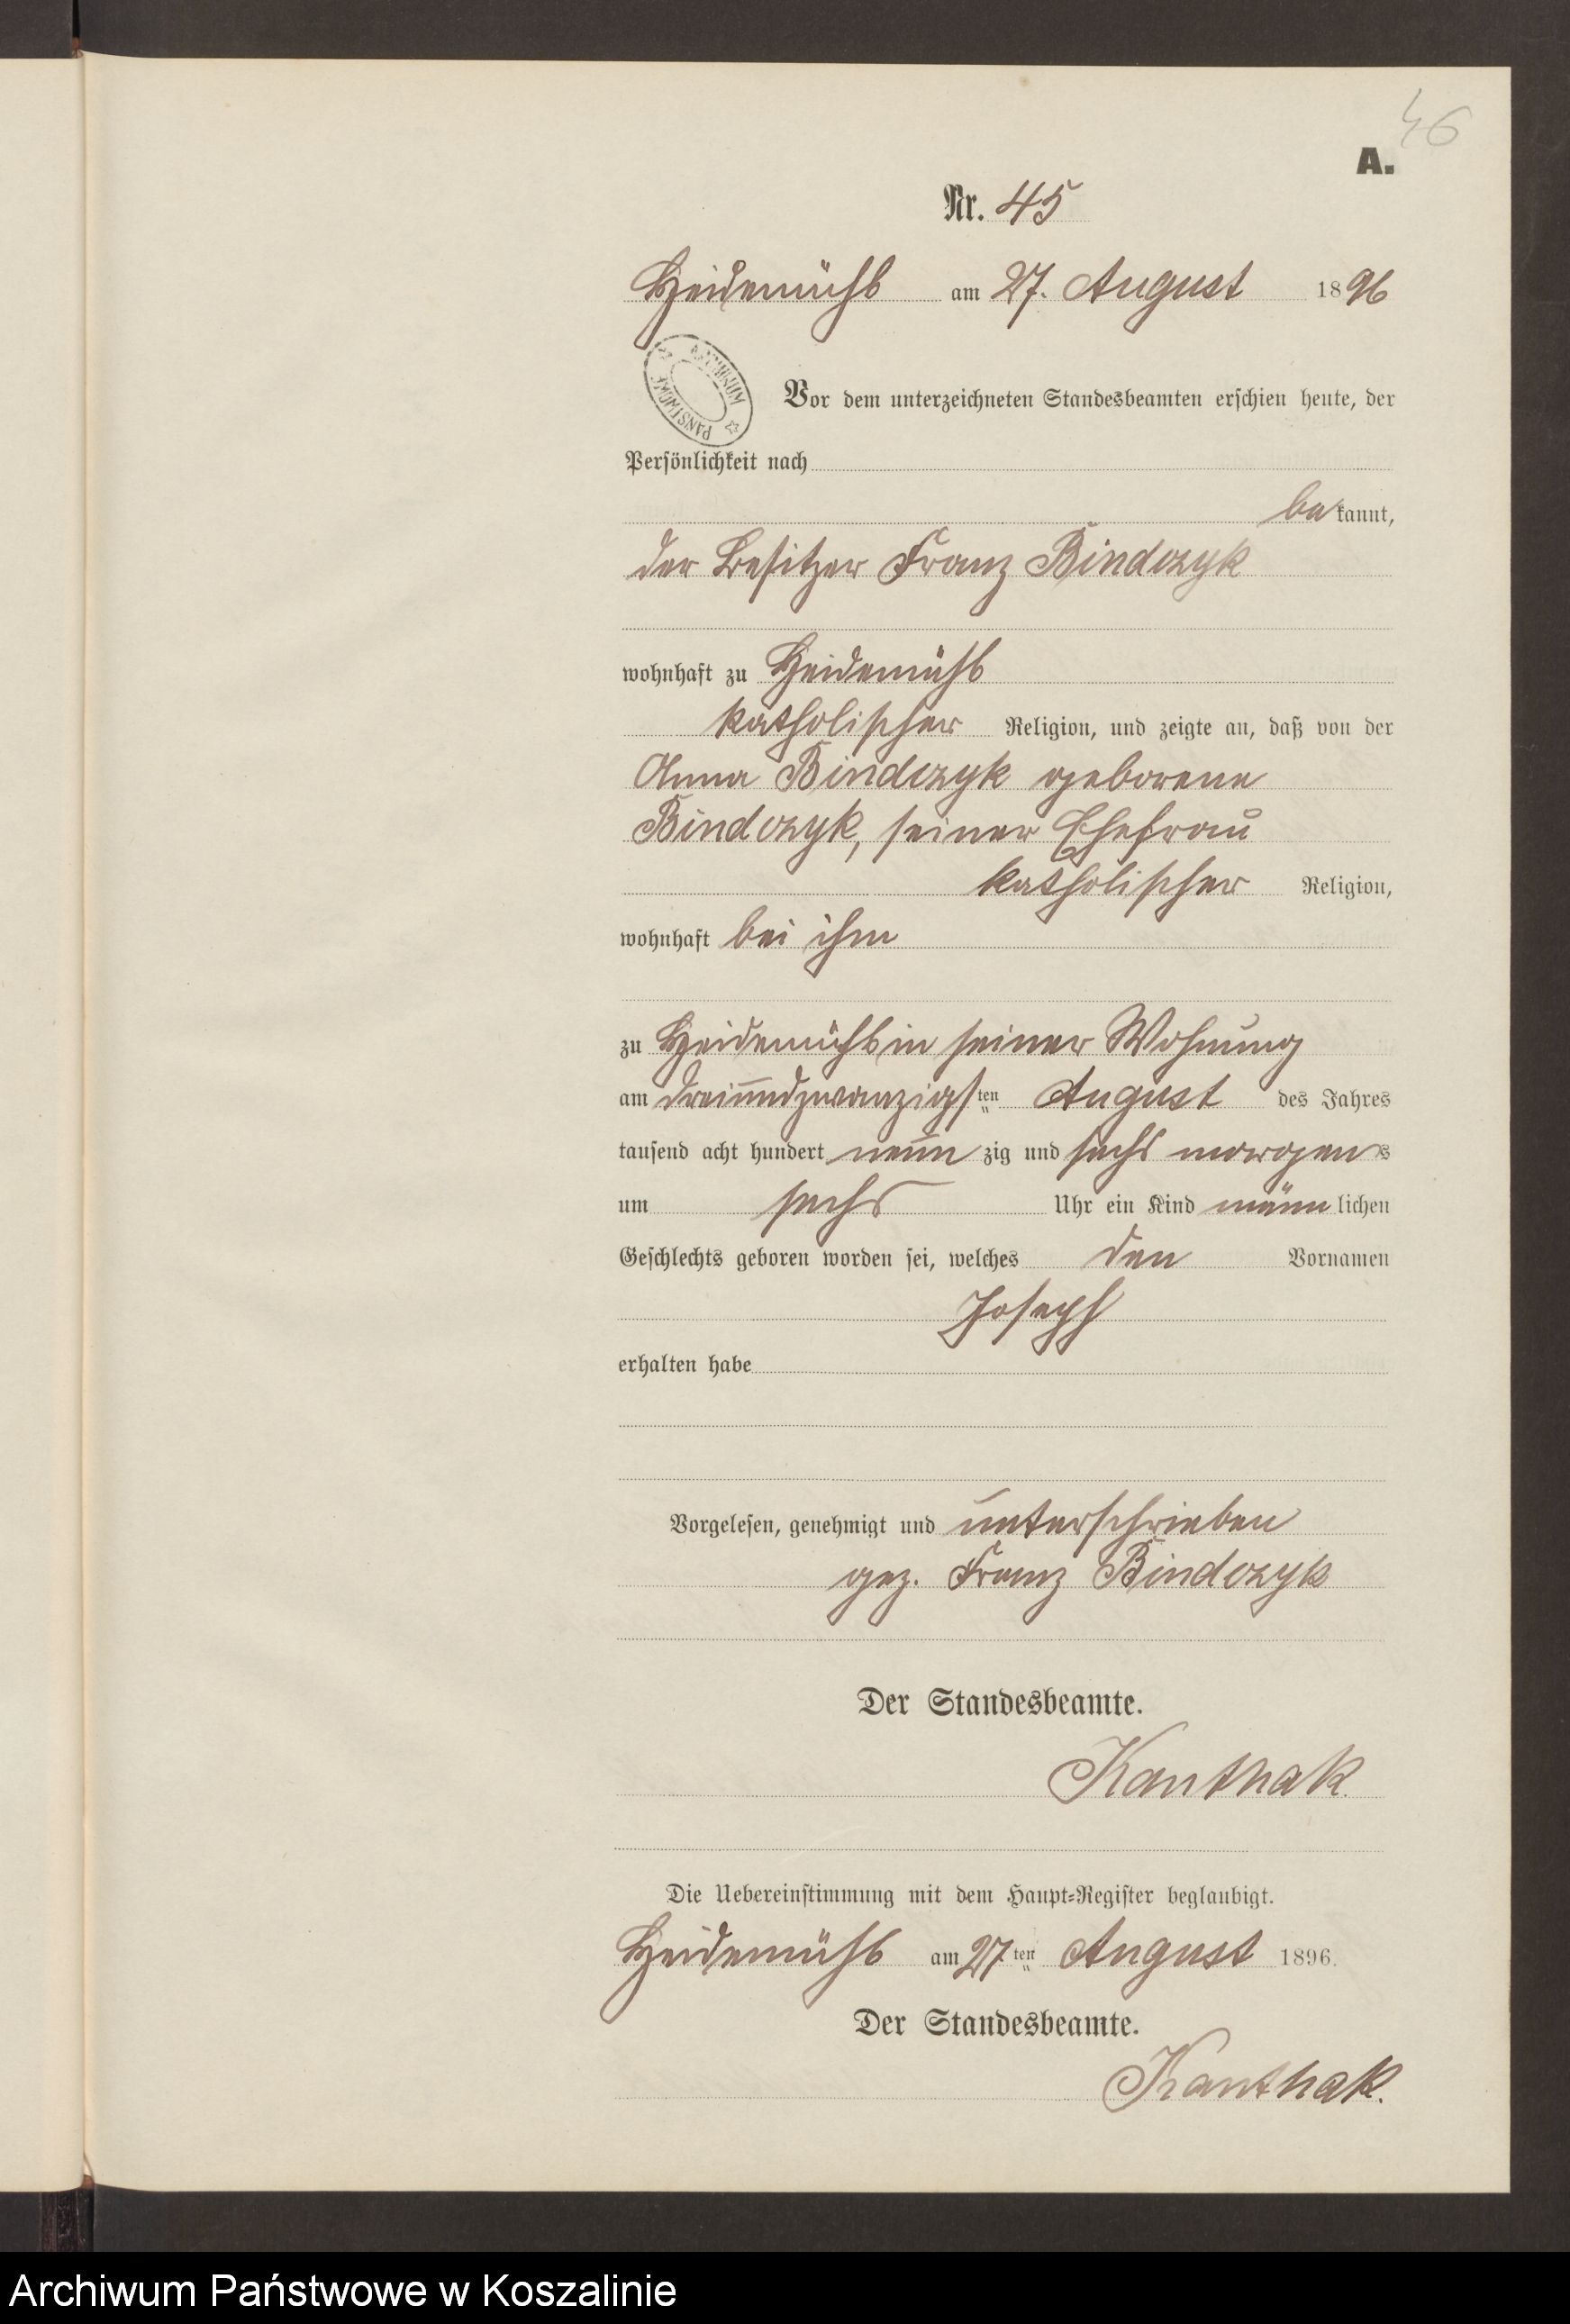 46
A.
Nr. 45
Heidemühl am 27. August 1896
ARCHIWUM PAŃSTWOWE
Vor dem unterzeichneten Standesbeamten erschien heute, der
Persönlichkeit nach
bekannt,
der Besitzer Franz Bindczyk
wohnhaft zu Heidemühl
katholischer Religion, und zeigte an, daß von der
Anna Bindczyk geborene
Bindczyk, seiner Ehefrau
katholischer Religion,
wohnhaft bei ihm
zu Heidemühl in seiner Wohnung
am dreiundzwanzigsten August des Jahres
tausend acht hundert neunzig und sechs morgens
um sechs Uhr ein Kind männlichen
Geschlechts geboren worden sei, welches den Vornamen
Joseph
erhalten habe
Vorgelesen, genehmigt und unterschrieben
gez. Franz Bindczyk
Der Standesbeamte.
Kanthak.
Die Uebereinstimmung mit dem Haupt-Register beglaubigt.
Heidemühl am 27ten August 1896.
Der Standesbeamte.
Kanthak.
Archiwum Państwowe w Koszalinie